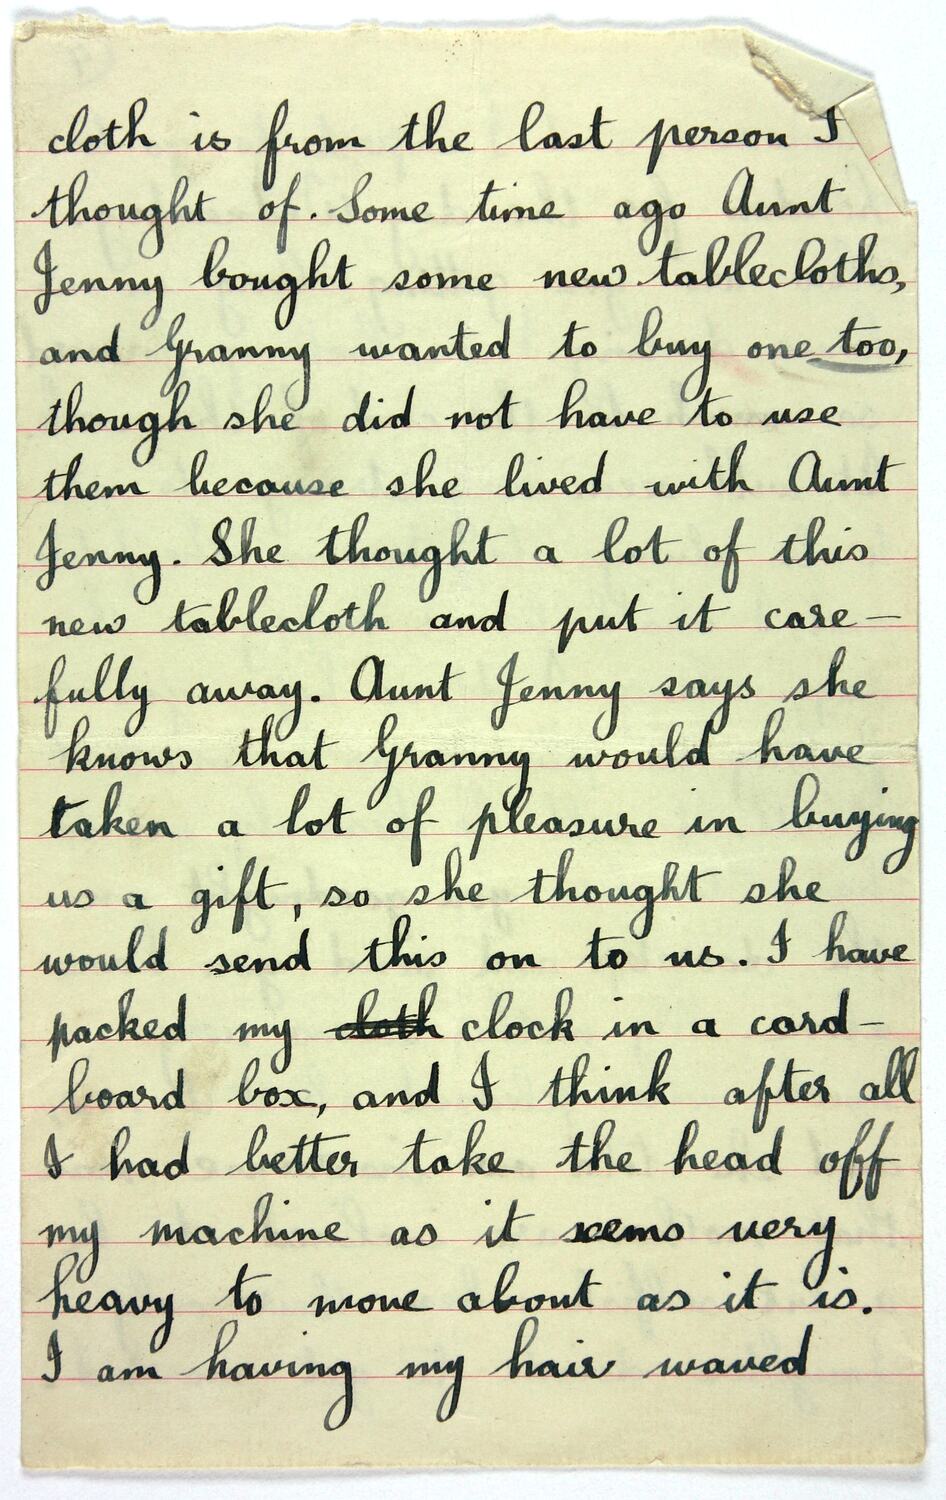 cloth is from the last person I
thought of. Some time ago Aunt
Jenny bought some new tablecloths,
and Granny wanted to buy one too,
though she did not have to use
them because she lived with Aunt
Jenny. She thought a lot of this
new tablecloth and put it care-
fully away. Aunt Jenny says she
knows that Granny would have
taken a lot of pleasure in buying
us a gift, so she thought she
would send this on to us. I have
packed my cloth clock in a card-
board box, and I think after all
I had better take the head off
my machine as it seems very
heavy to move about as it is.
I am having my hair waved